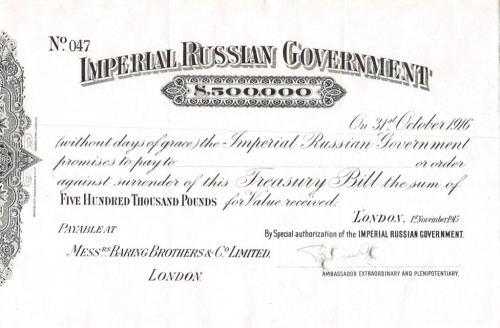 Nº 047
IMPERIAL RUSSIAN GOVERNMENT
£.500.000
On 31st October 1916
(without days of grace) the Imperial Russian Government
promises to pay to or order
against surrender of this Treasury Bill the sum of
FIVE HUNDRED THOUSAND POUNDS for Value received.
LONDON. 1st November 1915
PAYABLE AT
By Special authorization of the IMPERIAL RUSSIAN GOVERNMENT.
MESSRS BARING BROTHERS & Cº LIMITED,
LONDON.
AMBASSADOR EXTRAORDINARY AND PLENIPOTENTIARY.